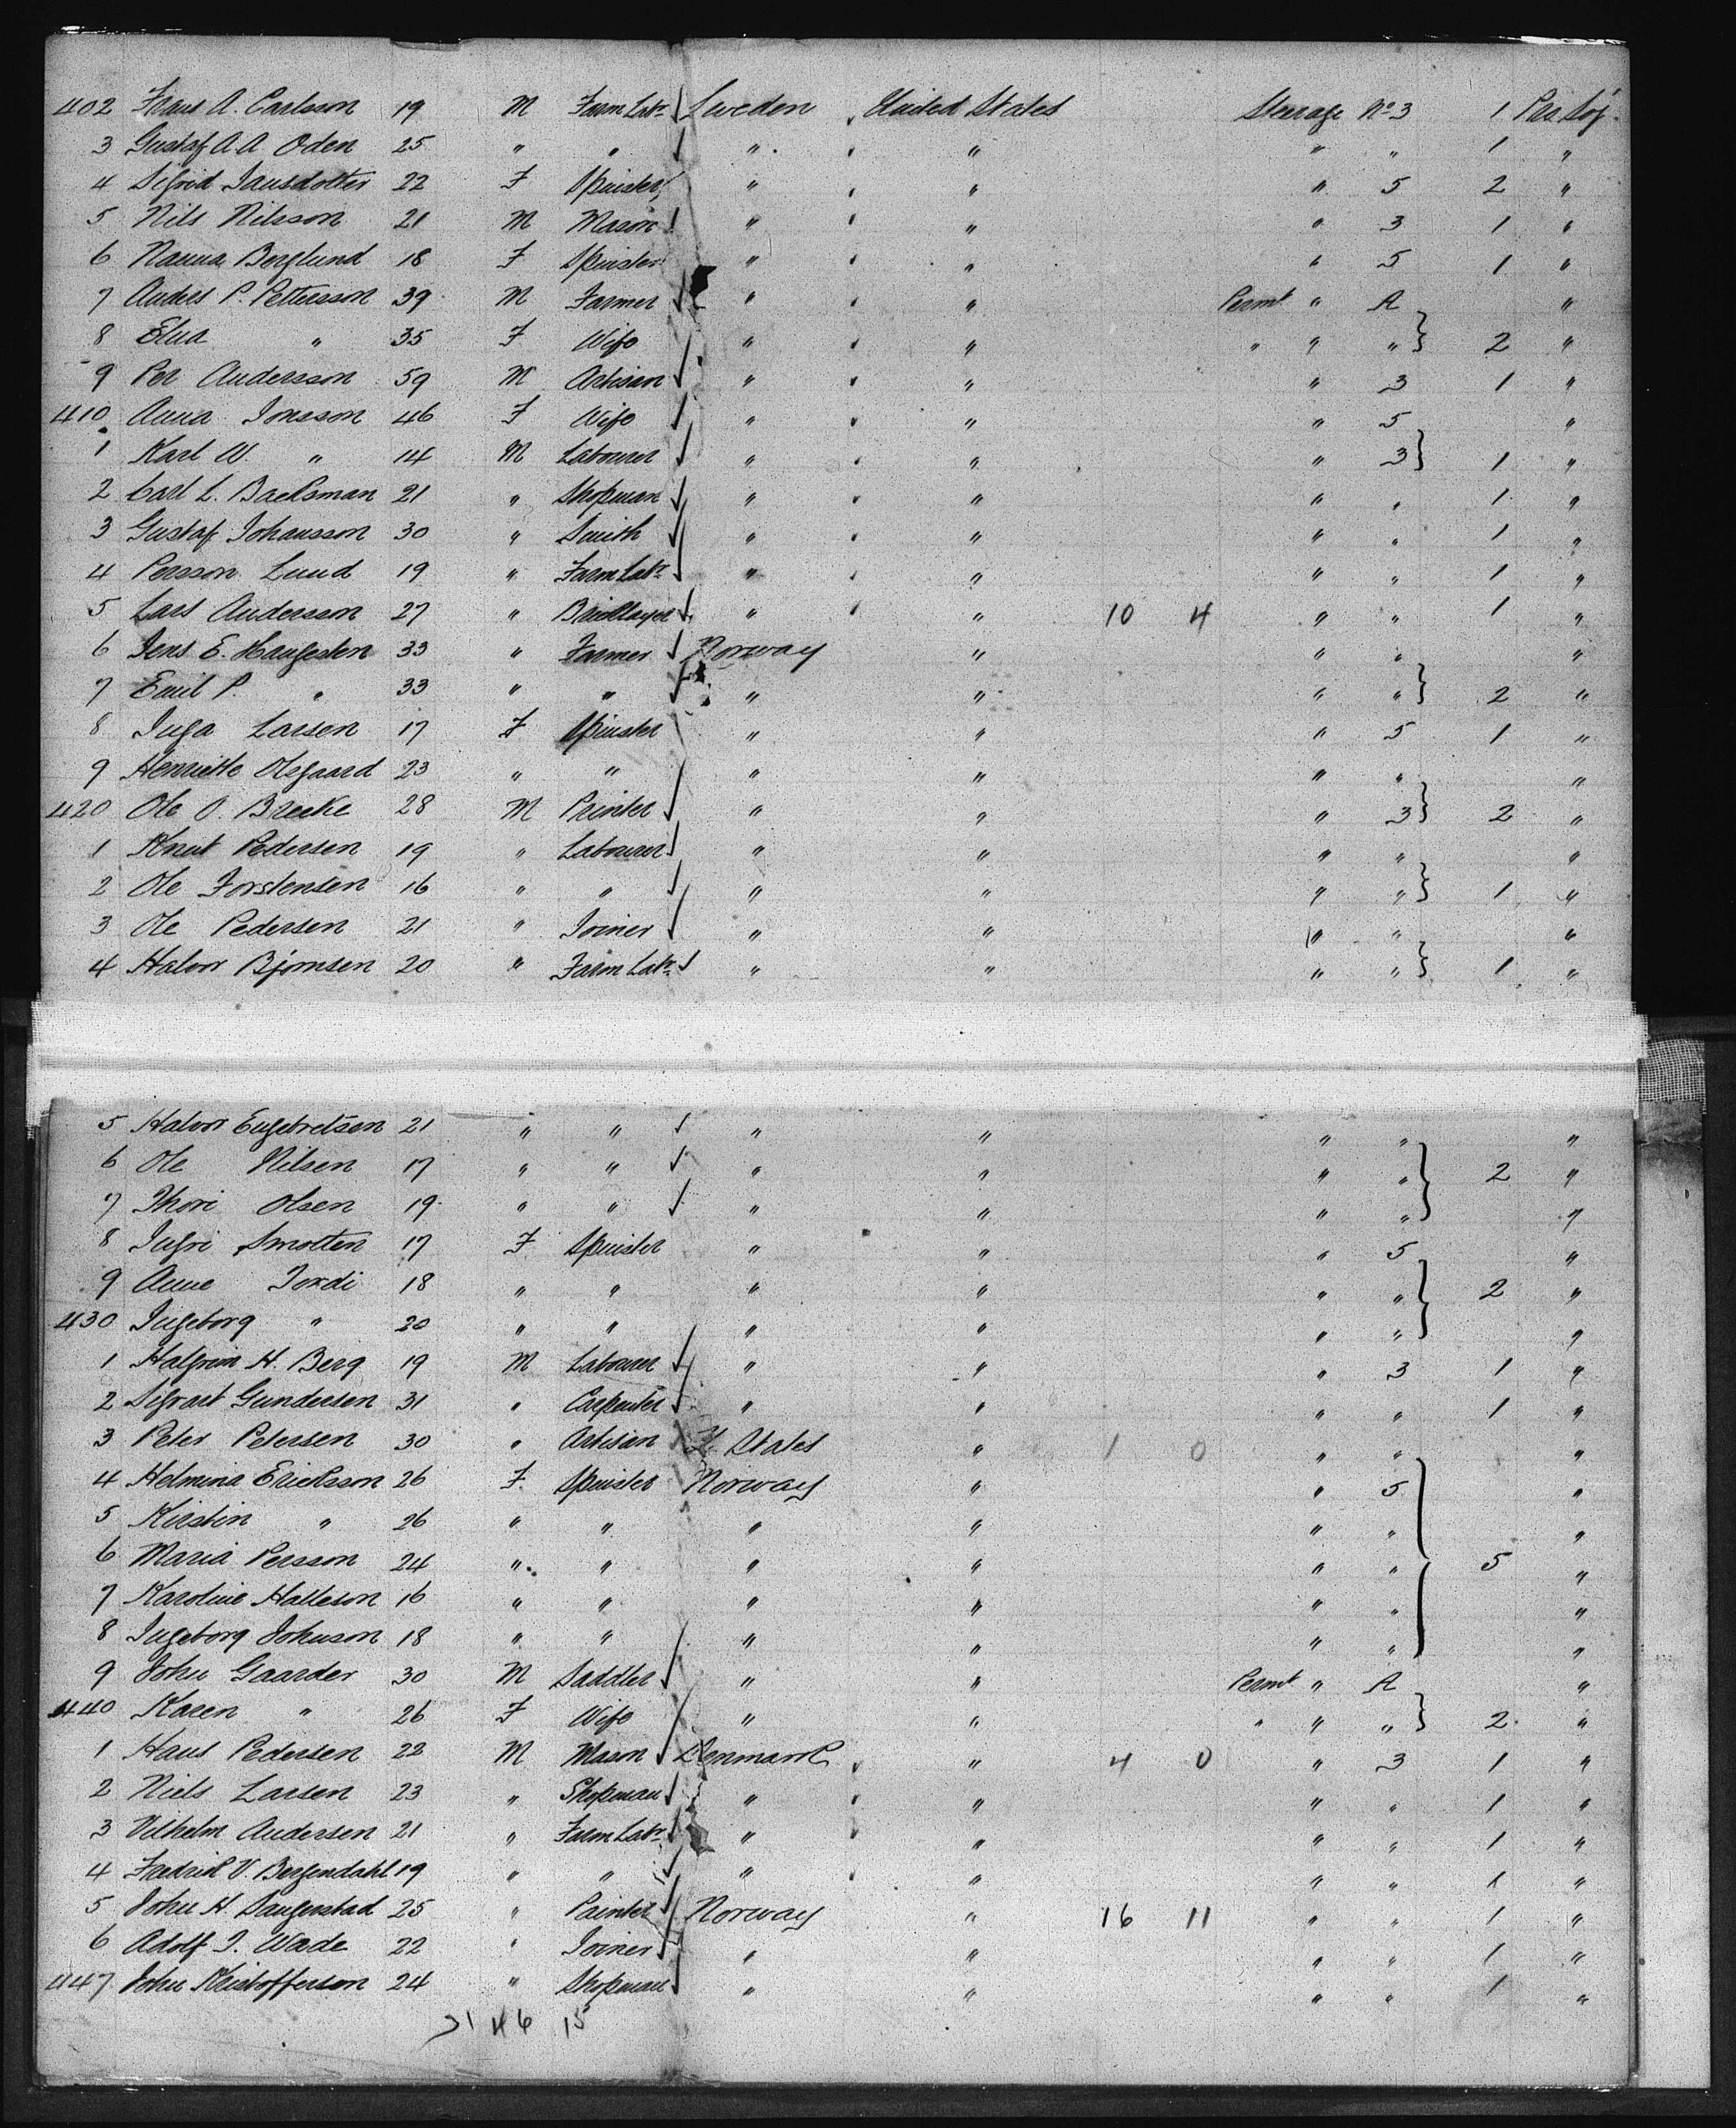 402 Frans A. Carlsson 19 M Farm Labr Sweden United States Steerage No 3 1 Pro Soj.
3 Gustaf A A Oden 25 " " " " " " 1 "
4 Sigrid Jansdotter 22 F Spinster " " " 5 2 "
5 Nils Nilsson 21 M Mason " " " 3 1 "
6 Nanna Berglund 18 F Spinster " " " 5 1 "
7 Anders P. Pettersson 39 M Farmer " " Permt " A "
8 Elna " 35 F Wife " " " " " 2 "
9 Per Andersson 59 M Artisan " " " 3 1 "
410 Anna Jonsson 46 F Wife " " " 5 "
1 Karl W. " 14 M Labourer " " " 3 1 "
2 Carl L. Backsman 21 " Shopman " " " " 1 "
3 Gustaf Johansson 30 " Smith " " " " 1 "
4 Persson Lund 19 " Farm Labr " " " " 1 "
5 Lars Andersson 27 " Bricklayer " " 10 4 " " 1 "
6 Jens E. Haugesten 33 " Farmer Norway " " " "
7 Emil P. " 33 " " " " " " 2 "
8 Inga Larsen 17 F Spinster " " " 5 1 "
9 Henriette Olsgaard 23 " " " " " " "
420 Ole O. Brecke 28 M Printer " " " 3 2 "
1 Knut Pedersen 19 " Labourer " " " " "
2 Ole Torstensen 16 " " " " " " 1 "
3 Ole Pedersen 21 " Joiner " " " " "
4 Halvor Bjornsen 20 " Farm Labr " " " " 1 "
5 Halvor Engebretsen 21 " " " " " " "
6 Ole Nilsen 17 " " " " " " 2 "
7 Thori Olsen 19 " " " " " " "
8 Ingri Smotten 17 F Spinster " " " 5 "
9 Anne Tordi 18 " " " " " " 2 "
430 Ingeborg " 20 " " " " " " "
1 Halgrim H. Berg 19 M Labourer " " " 3 1 "
2 Sigvart Gundersen 31 " Carpenter " " " " 1 "
3 Peter Petersen 30 " Artisan U. States " 1 0 " " "
4 Helmina Ericksson 26 F Spinster Norway " " 5 "
5 Kirstin " 26 " " " " " " "
6 Maria Persson 24 " " " " " " 5 "
7 Karoline Halleson 16 " " " " " " "
8 Ingeborg Johnson 18 " " " " " " "
9 John Gaarder 30 M Saddler " " Permt " A "
440 Karen " 26 F Wife " " " " " 2 "
1 Hans Pedersen 22 M Mason Denmark " 4 0 " 3 1 "
2 Niels Larsen 23 " Shopman " " " " 1 "
3 Vilhelm Andersen 21 " Farm Labr " " " " 1 "
4 Fredrik V. Bergendahl 19 " " " " " " 1 "
5 John H. Saugerstad 25 " Painter Norway " 16 11 " " 1 "
6 Adolf J. Wade 22 " Joiner " " " " 1 "
447 John Kristofferson 24 " Shopman " " " " 1 "
31 46 15